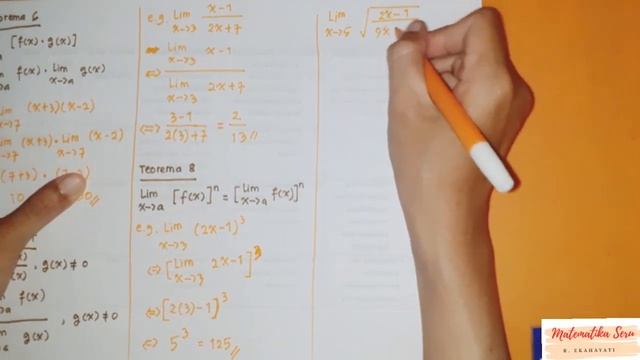 orema 6
[f(x) · g(x)]
f(x) · Lim x→a g(x)
im x→7 (x+3)(x-2)
Lim (x+3) · Lim x→7 (x-2)
(7+3) ·
10
, g(x) ≠ 0
f(x)
g(x) , g(x) ≠ 0
e.g. Lim x→3 x-1 / 2x+7
Lim x→3 x-1
⇔
Lim x→3 2x+7
⇔ 3-1 / 2(3)+7 = 2 / 13 //
Teorema 8
Lim x→a [f(x)]^n = [Lim x→a f(x)]^n
e.g. Lim x→3 (2x-1)^3
⇔ [Lim x→3 2x-1]^3
⇔ [2(3)-1]^3
⇔ 5^3 = 125 //
Lim x→5 √ 2x-1 / 9x
Matematika Seru
R. EKAHAYATI